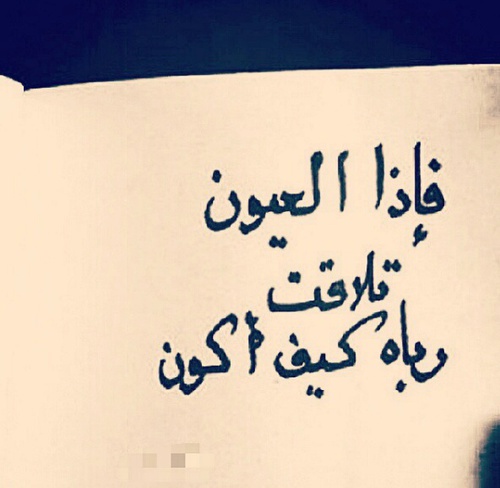 فإذا العيون
تلاقت
رباه كيف أكون